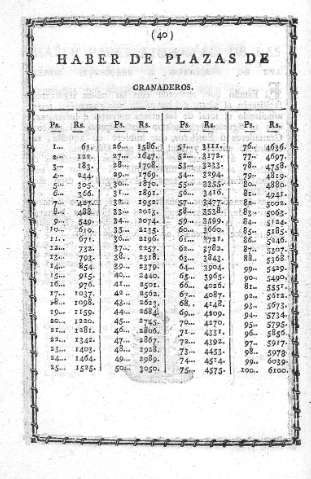 (40)
HABER DE PLAZAS DE
GRANADEROS.
Ps. Rs. Ps. Rs. Ps. Rs. Ps. Rs.
1... 61. 26... 1586. 51... 3111. 76... 4636.
2... 122. 27... 1647. 52... 3172. 77... 4697.
3... 183. 28... 1708. 53... 3233. 78... 4758.
4... 244. 29... 1769. 54... 3294. 79... 4819.
5... 305. 30... 1830. 55... 3355. 80... 4880.
6... 366. 31... 1891. 56... 3416. 81... 4941.
7... 427. 32... 1952. 57... 3477. 82... 5002.
8... 488. 33... 2013. 58... 3538. 83... 5063.
9... 549. 34... 2074. 59... 3599. 84... 5124.
10... 610. 35... 2135. 60... 3660. 85... 5185.
11... 671. 36... 2196. 61... 3721. 86... 5246.
12... 732. 37... 2257. 62... 3782. 87... 5307.
13... 793. 38... 2318. 63... 3843. 88... 5368.
14... 854. 39... 2379. 64... 3904. 89... 5429.
15... 915. 40... 2440. 65... 3965. 90... 5490.
16... 976. 41... 2501. 66... 4026. 91... 5551.
17... 1037. 42... 2562. 67... 4087. 92... 5612.
18... 1098. 43... 2623. 68... 4148. 93... 5673.
19... 1159. 44... 2684. 69... 4109. 94... 5734.
20... 1220. 45... 2745. 70... 4270. 95... 5795.
21... 1281. 46... 2806. 71... 4331. 96... 5856.
22... 1342. 47... 2867. 72... 4392. 97... 5917.
23... 1403. 48... 2928. 73... 4453. 98... 5978.
24... 1464. 49... 2989. 74... 4514. 99... 6039.
25... 1525. 50... 3050. 75... 4575. 100... 6100.